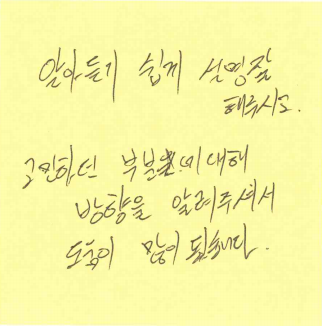 알아듣기 쉽게 설명잘
해주시고.
고민하던 부분에 대해
방향을 알려주셔서
도움이 많이 됩니다.